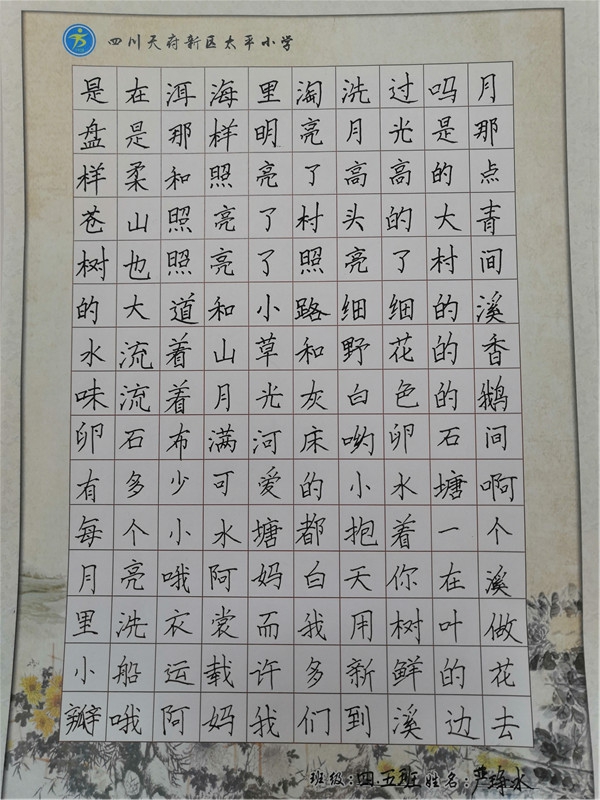 四川天府新区太平小学
是在洱海里淘洗过吗月
盘是那样明亮月光是那
样柔和照亮了高高的点
苍山照亮了村头的大青
树也照亮了照亮了村间
的大道和小路细细的溪
水流着山草和野花的香
味流着月光灰白色的鹅
卵石布满河床哟卵石间
有多少可爱的小水塘啊
每个小水塘都抱着一个
月亮哦阿妈白天你在溪
里洗衣裳而我用树叶做
小船运载许多新鲜的花
瓣哦阿妈我们到溪边去
班级:四.五班姓名:严琦水